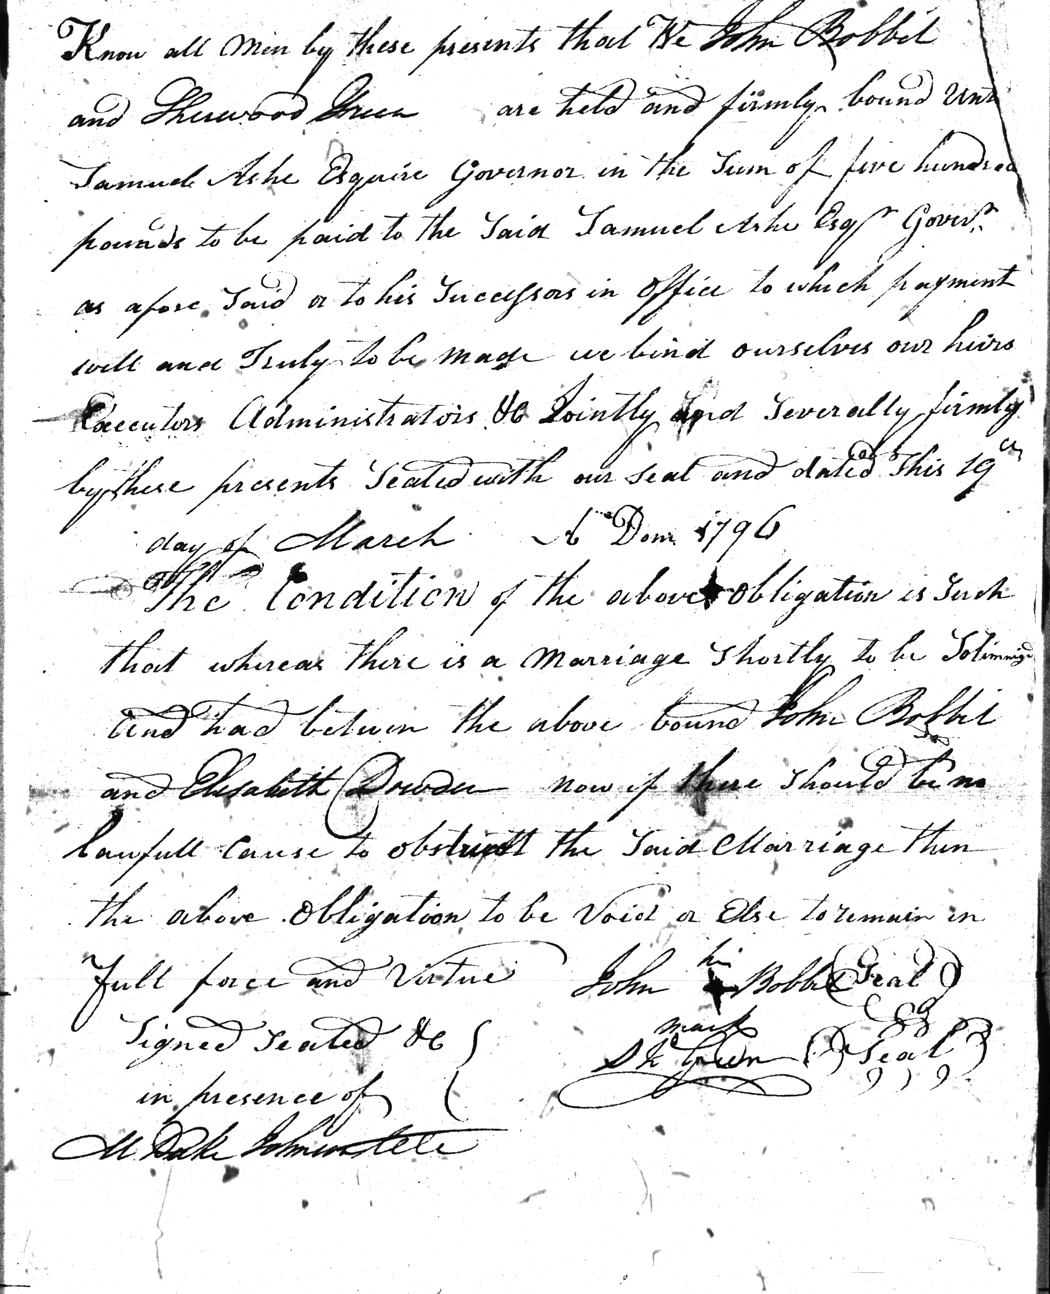 Know all Men by these presents that We John Bobbit
and Sherwood Green are held and firmly bound Unto
Samuel Ashe Esquire Governor in the Sum of five hundred
pounds to be paid to the Said Samuel Ashe Esqr Goverr
as afore Said or to his Successors in Office to which payment
well and Truly to be made we bind ourselves our heirs
Executors Administrators &c Jointly and Severally firmly
by these presents Sealed with our Seal and dated This 19th
day of March A Dom 1796
The Condition of the above Obligation is Such
that whereas there is a Marriage Shortly to be Solimnized
and had between the above bound John Bobbit
and Elisabeth Dowden Now if there Should be no
lawfull Cause to obstruct the Said Marriage then
the above Obligation to be Void or Else to remain in
full force and Virtue
his
John Bobbit Seal
mark
Signed Sealed &c
Sh Green Seal
in presence of
M Duke Johnson